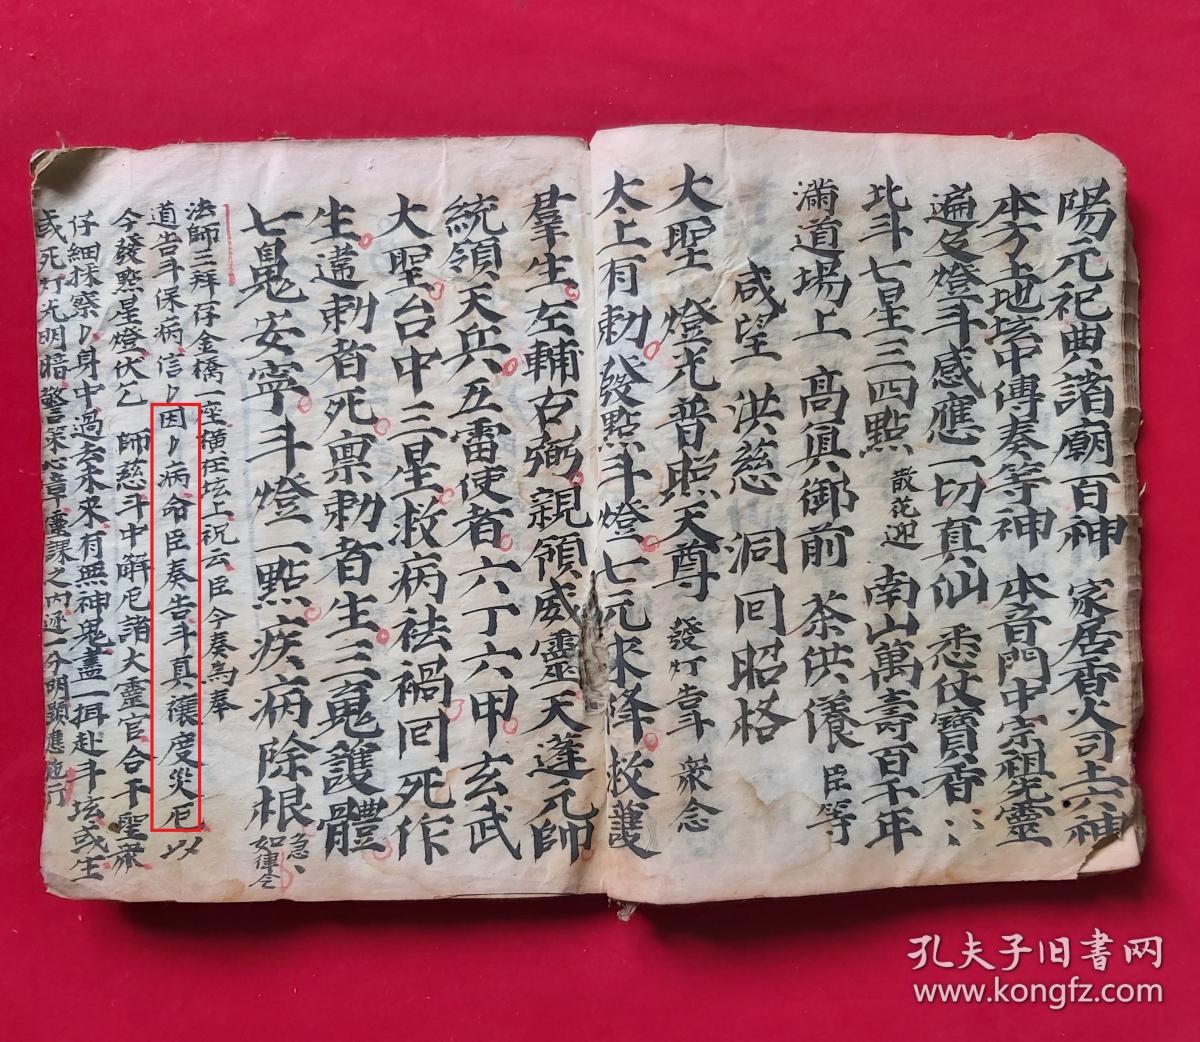 陽元祀典諸廟百神 家居香火司土六神
本方地坛中傳奏等神 本音門中宗祖先靈
遍及燈斗感應一切真仙 悉仗寶香〻
北斗七星三四點 散花迎 南山萬壽百千年
滿道場上 高真御前 茶洪養 臣等
咸望 洪慈 洞回昭格
大聖 燈光普照天尊 發灯告斗 衆念
太上有勅發點斗燈七元來降救護
羣生左輔右弼親領威靈天蓬元帥
統領天兵五雷使者六丁六甲玄武
大聖台中三星救病祛禍回死作
生違勅者死禀勅者生三魂護體
七魄安寧斗燈一點疾病除根 急〻如律令
法師三拜存金橋一座橫在坛上祝云臣今奏為奉
道告斗保病信〻因〻病命臣奏告斗真禳度災厄
今發點星燈伏乞 師慈斗中解厄諸大靈官合干聖衆
仔細採察〻身中過去未來有無神鬼盡一捐赴斗坛或生
或死灯光明暗 章 課之内 一分明顯應施行
孔夫子旧书网
www.kongfz.com